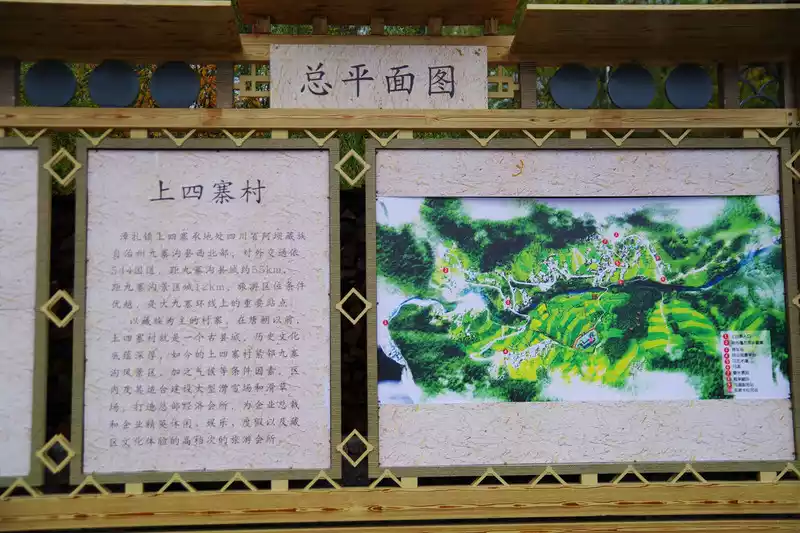 总平面图
上四寨村
漳扎镇上四寨永地处四川省阿坝藏族
自治州九寨沟县西北部，村外交通依
544国道，距九寨沟县城约55km，
距九寨沟景区域12km，旅游区位条件
优越，是大九寨环线上的重要站点。
以藏族为主的村寨，在唐朝以前，
上四寨村就是一个古县城，历史文化
底蕴深厚，如今的上四寨村紧邻九寨
沟风景区，加之气候等条件因素，区
内度是适合建设大型滑雪场和滑草
场，打造总部经济会所，为企业总裁
和企业精英休闲、娱乐，度假以及藏
区文化体验的高档次的旅游会所。